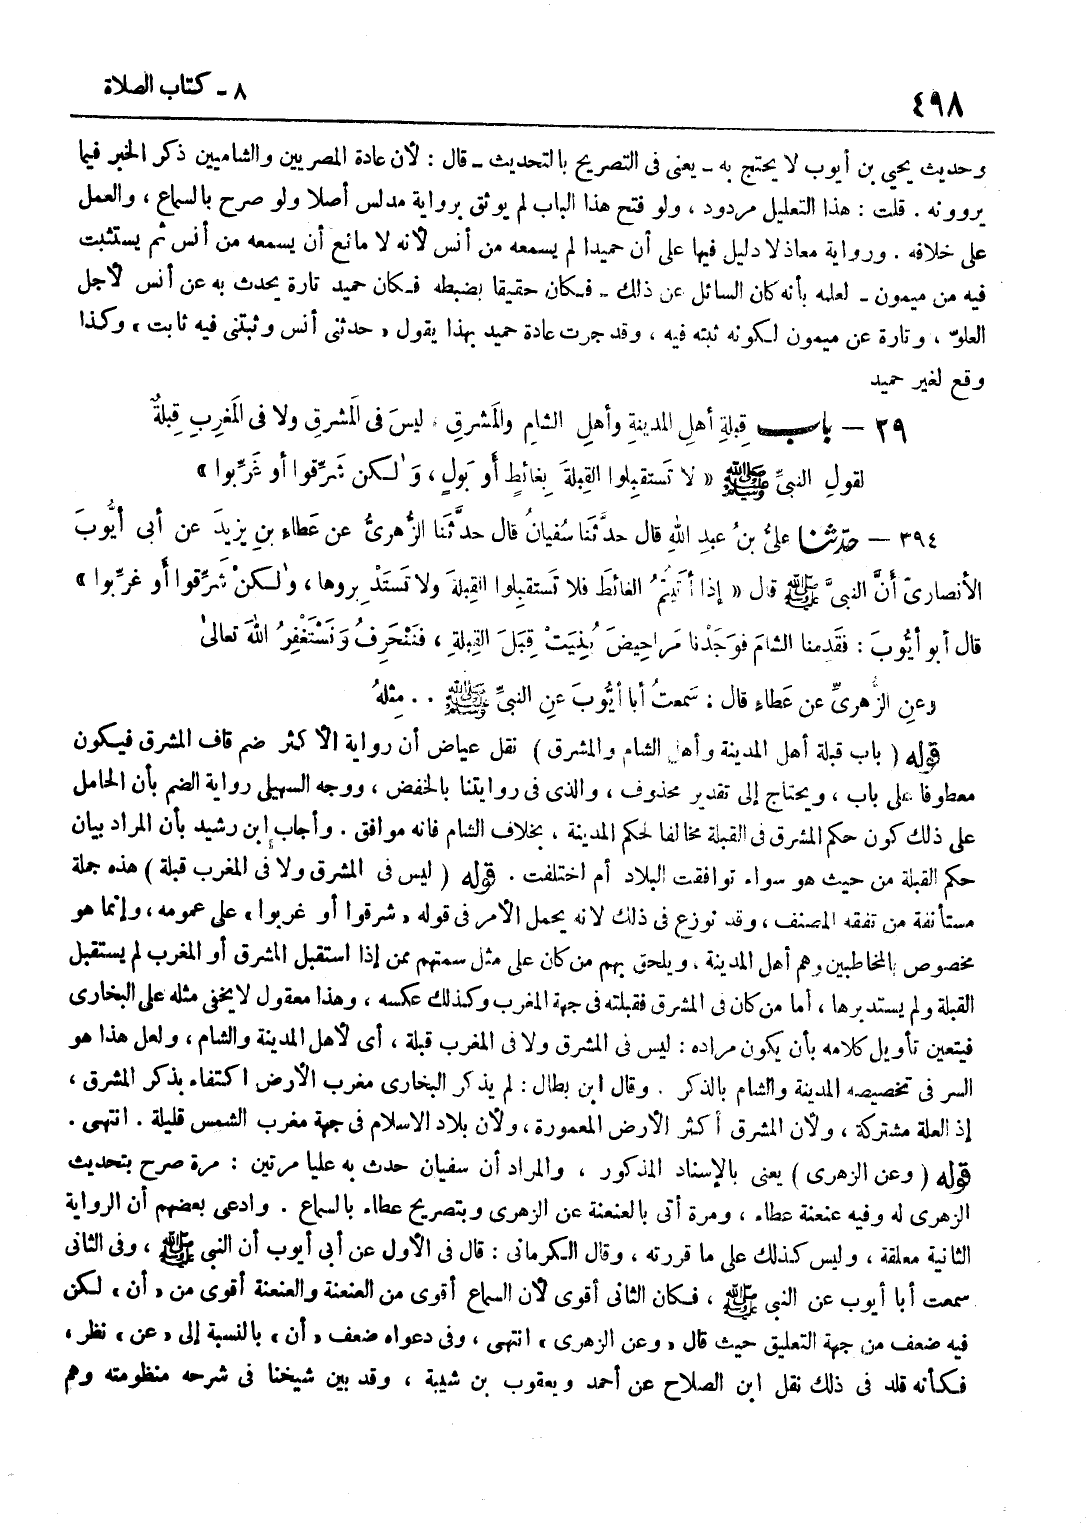 ٤٩٨
٨ - كتاب الصلاة
وحديث يحيى بن أيوب لا يحتج به - يعنى فى التصريح بالتحديث - قال : لأن عادة المصريين والشاميين ذكر الخبر فيما
يروونه . قلت : هذا التعليل مردود ، ولو فتح هذا الباب لم يوثق برواية مدلس أصلا ولو صرح بالسماع ، والعمل
على خلافه . ورواية معاذ لا دليل فيها على أن حميدا لم يسمعه من أنس لأنه لا مانع أن يسمعه من أنس ثم يستثبت
فيه من ميمون - لعلمه بأنه كان السائل عن ذلك - فكان حقيقا بضبطه فكان حميد تارة يحدث به عن أنس لأجل
العلوّ ، وتارة عن ميمون لكونه ثبته فيه ، وقد جرت عادة حميد بهذا يقول « حدثنى أنس وثبتنى فيه ثابت » وكذا
وقع لغير حميد
٢٩ – باب قِبلةِ أهلِ المدينةِ وأهلِ الشامِ والمَشرقِ ، ليسَ فى المَشرِقِ ولا فى المَغرِبِ قِبلةٌ
لقولِ النبىِّ ﷺ « لا تَستقبِلوا القِبلةَ بِغائطٍ أو بَولٍ ، وَلٰكن شَرِّقوا أو غَرِّبوا »
٣٩٤ – حدّثنا علىُّ بنُ عبدِ اللهِ قال حدَّثَنا سُفيانُ قال حدثَنا الزُّهرىُّ عن عَطاءِ بنِ يزيدَ عن أبى أيُّوبَ
الأنصارىّ أنَّ النبىَّ ﷺ قال « إذا أتَيتُمُ الغائطَ فلا تَستقبِلوا القِبلةَ ولا تَستَدْبِروها ، ولٰكنْ شَرِّقوا أو غرِّبوا »
قال أبو أيُّوبَ : فقَدِمنا الشامَ فوَجَدْنا مَراحِيضَ بُنِيَتْ قِبَلَ القِبلةِ ، فنَنْحَرِفُ وَنَسْتَغْفِرُ اللهَ تعالىٰ
وعنِ الزُّهرىِّ عن عَطاءِ قال : سَمعتُ أبا أيُّوبَ عنِ النبىِّ ﷺ . . مِثلَهُ
قوله ( باب قبلة أهل المدينة وأهل الشام والمشرق ) نقل عياض أن رواية الأكثر ضم قاف المشرق فيكون
معطوفا على باب ، ويحتاج إلى تقدير محذوف ، والذى فى روايتنا بالخفض ، ووجه السهيلى رواية الضم بأن الحامل
على ذلك كون حكم المشرق فى القبلة مخالفا لحكم المدينة ، بخلاف الشام فانه موافق . وأجاب ابن رشيد بأن المراد بيان
حكم القبلة من حيث هو سواء توافقت البلاد أم اختلفت . قوله ( ليس فى المشرق ولا فى المغرب قبلة ) هذه جملة
مستأنفة من تفقه المصنف ، وقد نوزع فى ذلك لانه يحمل الأمر فى قوله « شرقوا أو غربوا » على عمومه ، وإنما هو
مخصوص بالمخاطبين وهم أهل المدينة ، ويلحق بهم من كان على مثل سمتهم ممن إذا استقبل المشرق أو المغرب لم يستقبل
القبلة ولم يستدبرها ، أما من كان فى المشرق فقبلته فى جهة المغرب وكذلك عكسه ، وهذا معقول لا يخفى مثله على البخارى
فيتعين تأويل كلامه بأن يكون مراده : ليس فى المشرق ولا فى المغرب قبلة ، أى لأهل المدينة والشام ، ولعل هذا هو
السر فى تخصيصه المدينة والشام بالذكر . وقال ابن بطال : لم يذكر البخارى مغرب الأرض اكتفاء بذكر المشرق ،
إذ العلة مشتركة ، ولأن المشرق أكثر الأرض المعمورة ، ولأن بلاد الاسلام فى جهة مغرب الشمس قليلة . انتهى .
قوله ( وعن الزهرى ) يعنى بالإسناد المذكور ، والمراد أن سفيان حدث به عليا مرتين : مرة صرح بتحديث
الزهرى له وفيه عنعنة عطاء ، ومرة أتى بالعنعنة عن الزهرى وبتصريح عطاء بالسماع . وادعى بعضهم أن الرواية
الثانية معلقة ، وليس كذلك على ما قررته ، وقال الكرمانى : قال فى الأول عن أبى أيوب أن النبى ﷺ ، وفى الثانى
سمعت أبا أيوب عن النبى ﷺ ، فكان الثانى أقوى لأن السماع أقوى من العنعنة والعنعنة أقوى من « أن » لكن
فيه ضعف من جهة التعليق حيث قال « وعن الزهرى » انتهى ، وفى دعواه ضعف « أن » بالنسبة إلى « عن » نظر ،
فكأنه قلد فى ذلك نقل ابن الصلاح عن أحمد ويعقوب بن شيبة ، وقد بين شيخنا فى شرحه منظومته وهم